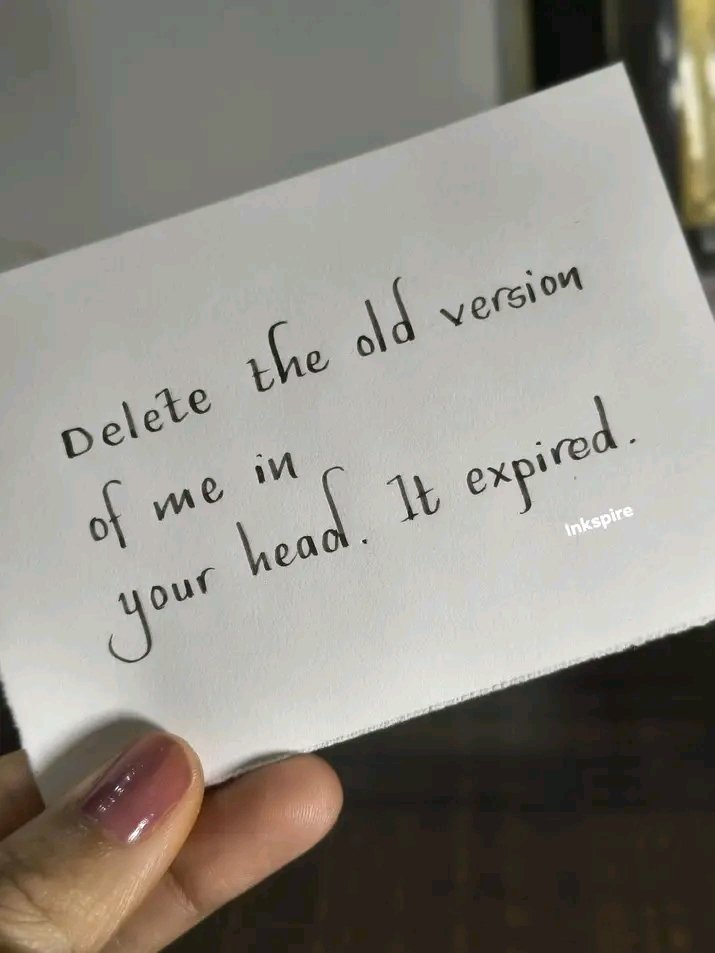 Delete the old version
of me in
your head. It expired.
Inkspire